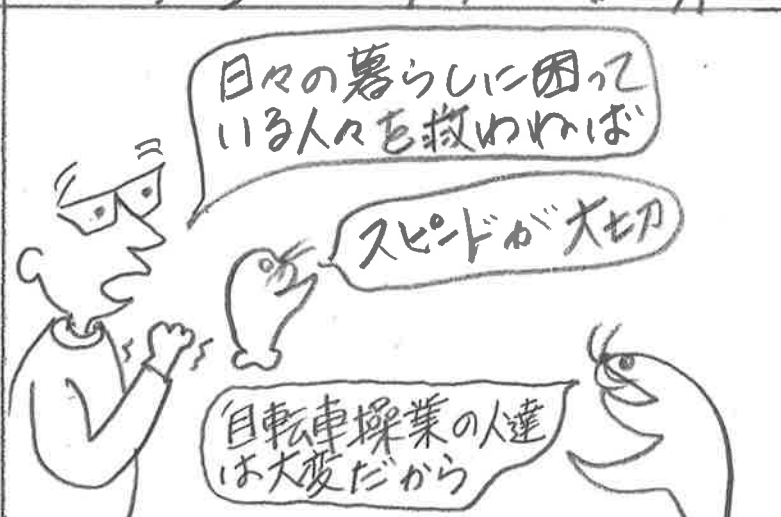 日々の暮らしに困って
いる人々を救わねば
スピードが大切
自転車操業の人達
は大変だから